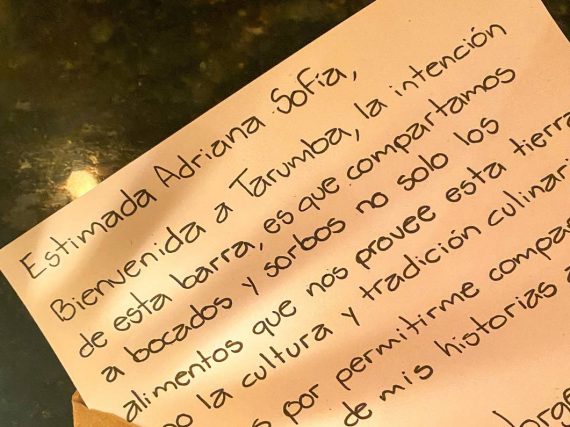 Estimada Adriana Sofía,
Bienvenida a Tarumba, la intención
de esta barra, es que compartamos
a bocados y sorbos no solo los
alimentos que nos provee esta tierra
la cultura y tradición culinari
por permitirme compar
de mis historias a
Jorge